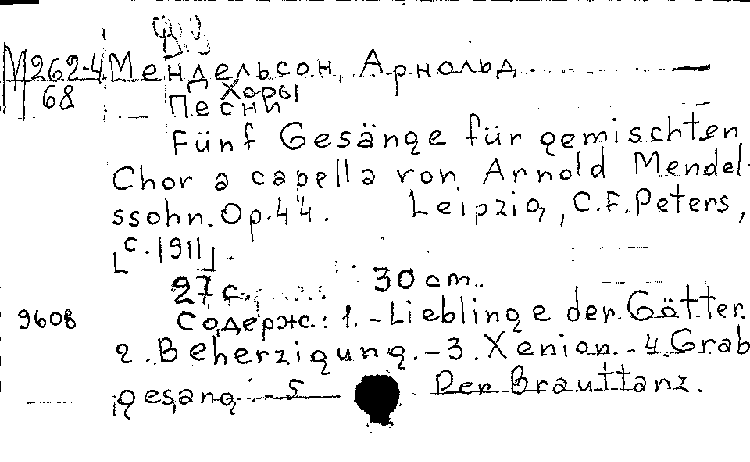 М262-4 Мендельсон, Арнольд
68 Хоры
Песни
Fünf Gesänge für gemischten
Chor a capella von Arnold Mendel-
ssohn. Op. 44. Leipzig, C.F. Peters,
[c. 1911].
27 с. 30 cm.
9608 Содерж.: 1. - Lieblinge der Götter.
2. Beherzigung. - 3. Xenion. - 4. Grab
gesang - 5 Der Brauttanz.